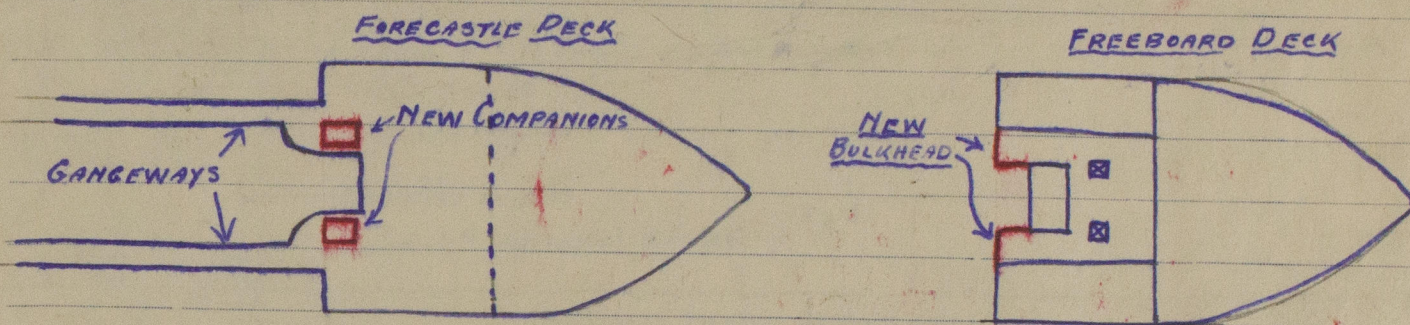 FORECASTLE DECK
NEW COMPANIONS
GANGEWAYS
FREEBOARD DECK
NEW
BULKHEAD